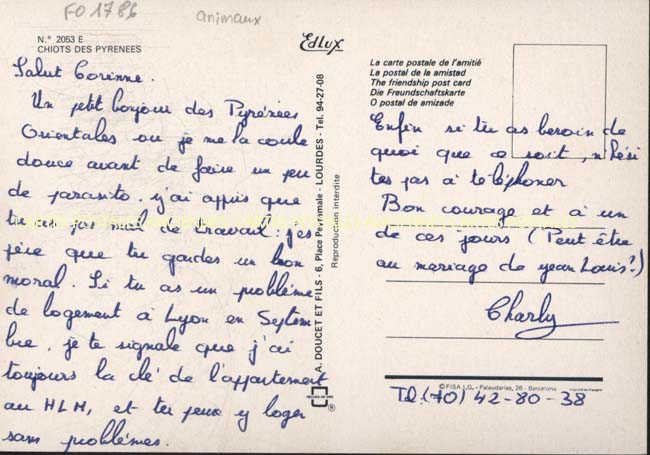 FO 1786
animaux
N.° 2053 E
CHIOTS DES PYRENEES
Edlux
Salut Corinne.
Un petit bonjour des Pyrénées
Orientales ou je me la coule
douce avant de faire un peu
de parasito. j'ai appris que
tu as pas mal de travail : j'es
père que tu gardes un bon
moral. Si tu as un problème
de logement à Lyon en Septem
bre, je te signale que j'ai
toujours la clé de l'appartement
au HLM, et tu peux y loger
sans problèmes.
A. DOUCET ET FILS - 6, Place Peyramale - LOURDES - Tel. 94-27-08
Reproduction interdite
La carte postale de l'amitié
La postal de la amistad
The friendship post card
Die Freundschaftskarte
O postal de amizade
Enfin si tu as besoin de
quoi que ce soit, n'hési
tes pas à téléphoner
Bon courage et à un
de ces jours (Peut être
au mariage de jean Louis?)
Charly
© FISA I.G. - Palaudarias, 26 - Barcelona
Tel. (70) 42-80-38